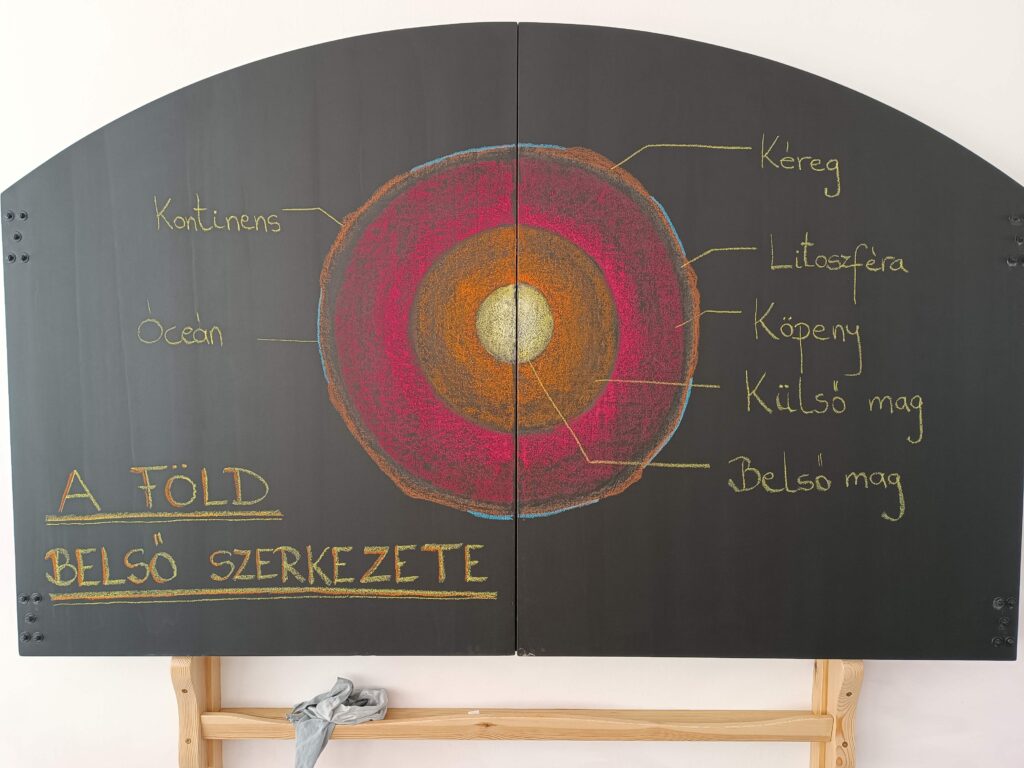 Kéreg
Kontinens
Litoszféra
Óceán
Köpeny
Külső mag
Belső mag
A FÖLD
BELSŐ SZERKEZETE